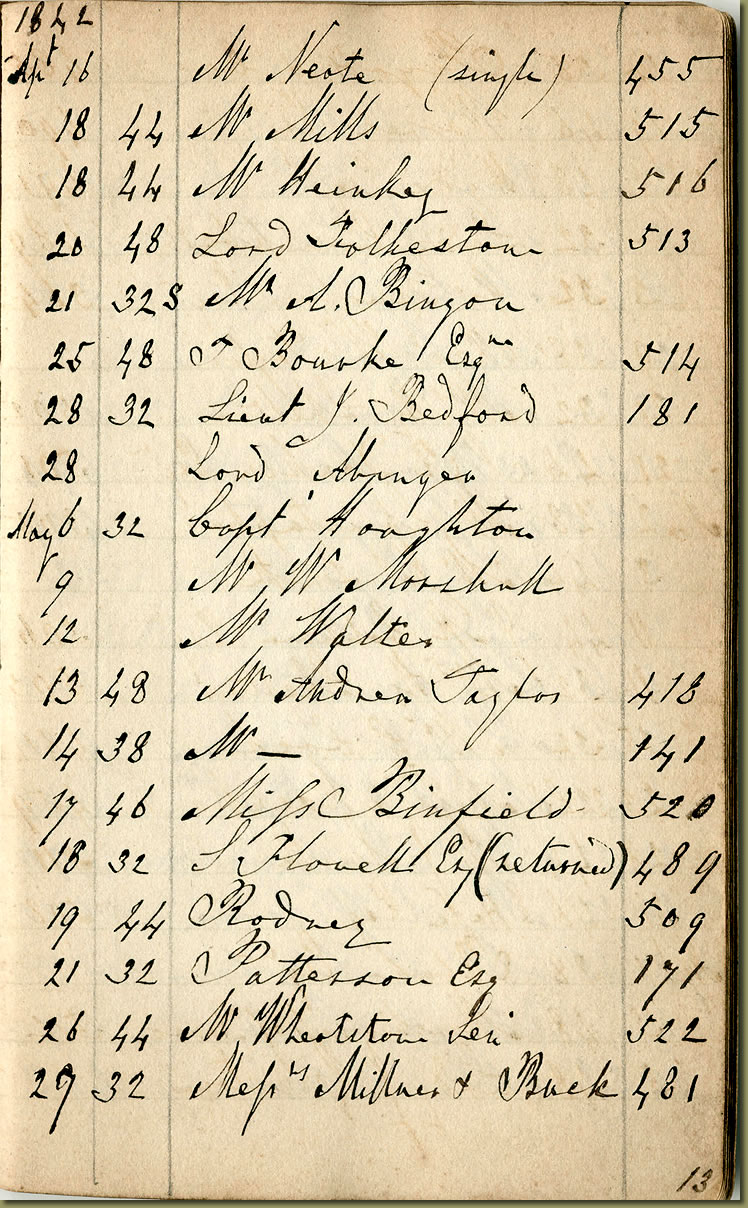 1842
Apt 16 Mr Neate (single) 455
18 44 Mr Mills 515
18 44 Mr Heinkey 516
20 48 Lord Folkestone 513
21 32 S Mr A. Bingon
25 48 T Bourke Esqre 514
28 32 Lieut J. Bedford 181
28 Lord Abinger
May 6 32 Capt Haughton
9 Mr W Marshall
12 Mr Walter
13 48 Mr Andrew Taylor 418
14 38 Mr — 141
17 46 Miss Binfield 520
18 32 S Flovell Esq (returned) 489
19 44 Rodney 509
21 32 Patterson Esq 171
26 44 Mr Wheatstone Sen 522
27 32 Messrs Millner & Buck 481
13